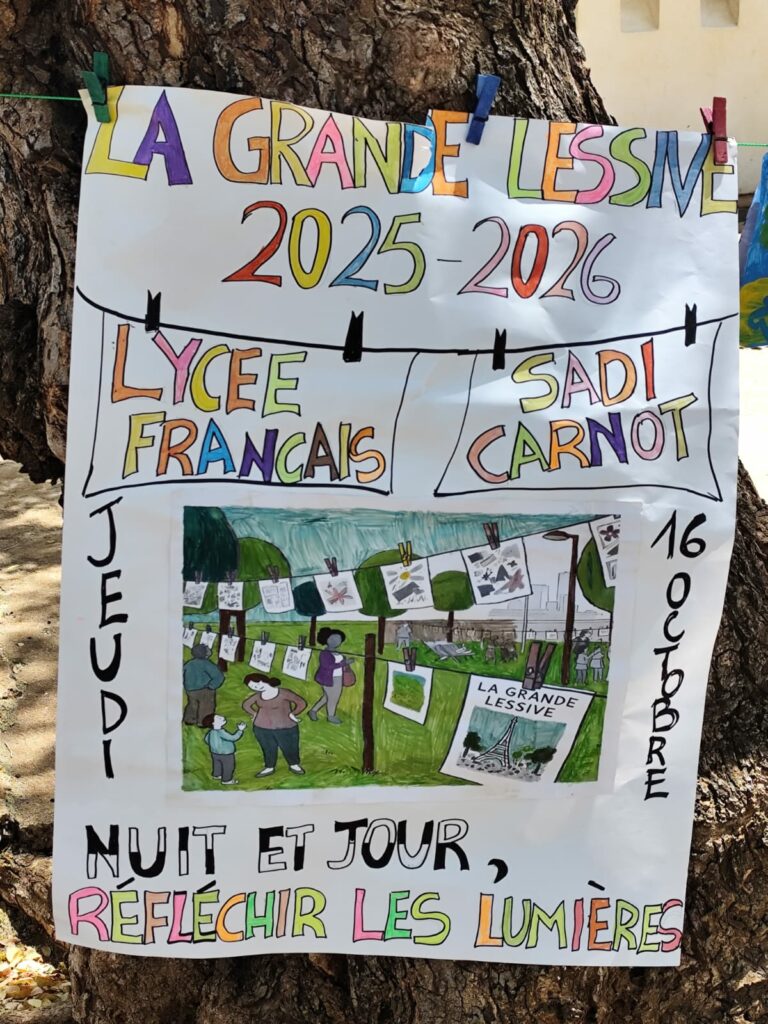 LA GRANDE LESSIVE
2025-2026
LYCEE
FRANCAIS
SADI
CARNOT
JEUDI
16 OCTOBRE
LA GRANDE
LESSIVE
NUIT ET JOUR,
RÉFLÉCHIR LES LUMIÈRES